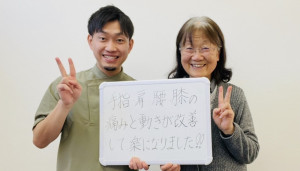 手指 肩 腰 膝の
痛みと動きが改善
して楽になりました!!!